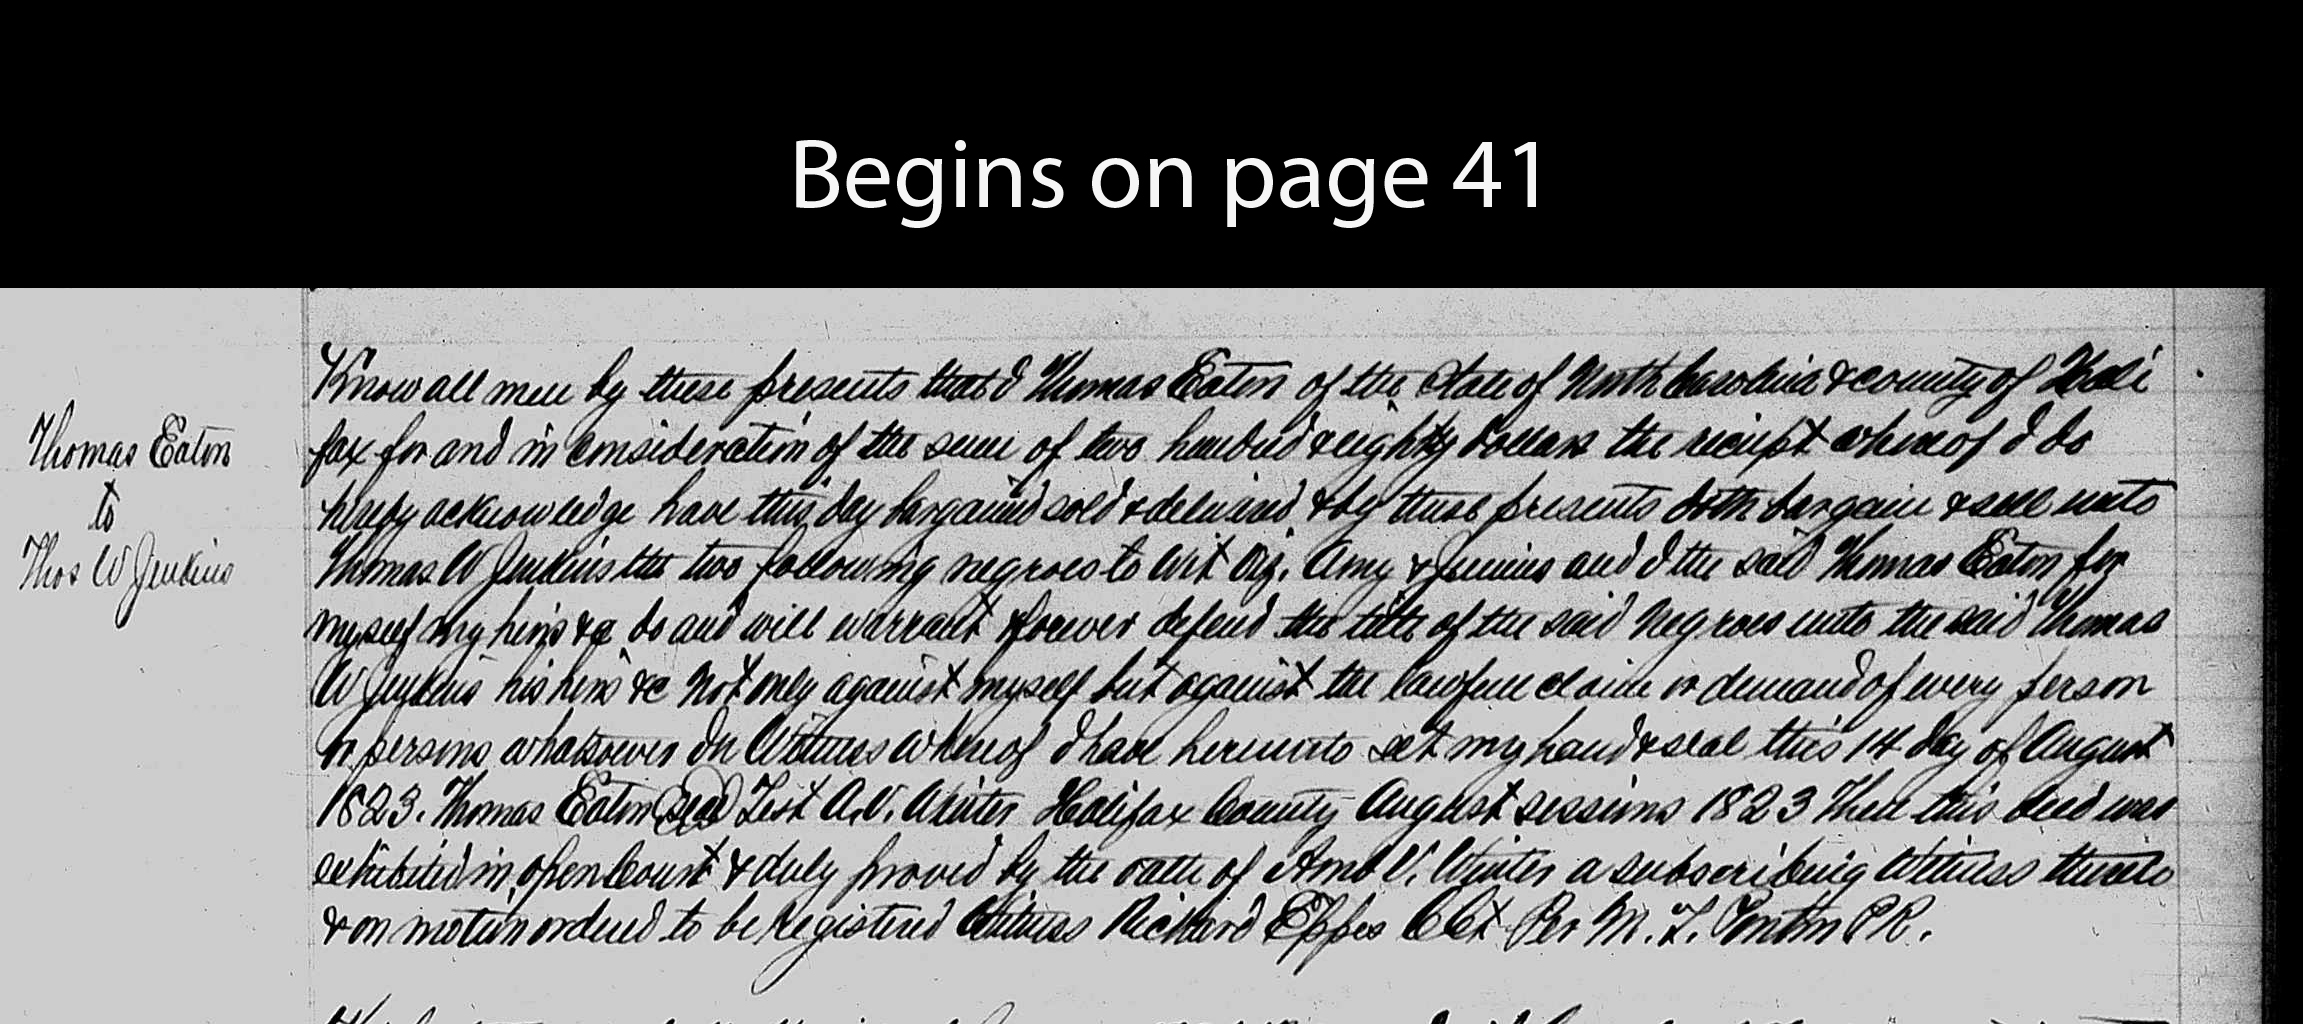 Begins on page 41
Thomas Eaton
to
Thos W Jenkins
Know all men by these presents that I Thomas Eaton of the State of North Carolina & county of Hali
fax for and in consideration of the sum of two hundred & eighty dollars the reciept whereof I do
hereby acknowledge have this day bargained sold & delivered & by these presents doth bargain & sell unto
Thomas W Jenkins the two following negroes to wit Viz. Amy & Junius and I the said Thomas Eaton for
myself my heirs &c do and will warrant & forever defend the title of the said Negroes unto the said Thomas
W Jenkins his heirs &c Not only against myself but against the lawfull claim or demand of every person
or persons whatsoever In Witness whereof I have hereunto set my hand & seal this 14 day of August
1823. Thomas Eaton Seal Test A.V. Winter Halifax County August sessions 1823 Then this deed was
exhibited in open Court & duly proved by the oath of Amb V. Winter a subscribing Witness thereto
& on motion ordered to be registered Witness Richard Eppes Clk Per M. T. Ponton P.R.